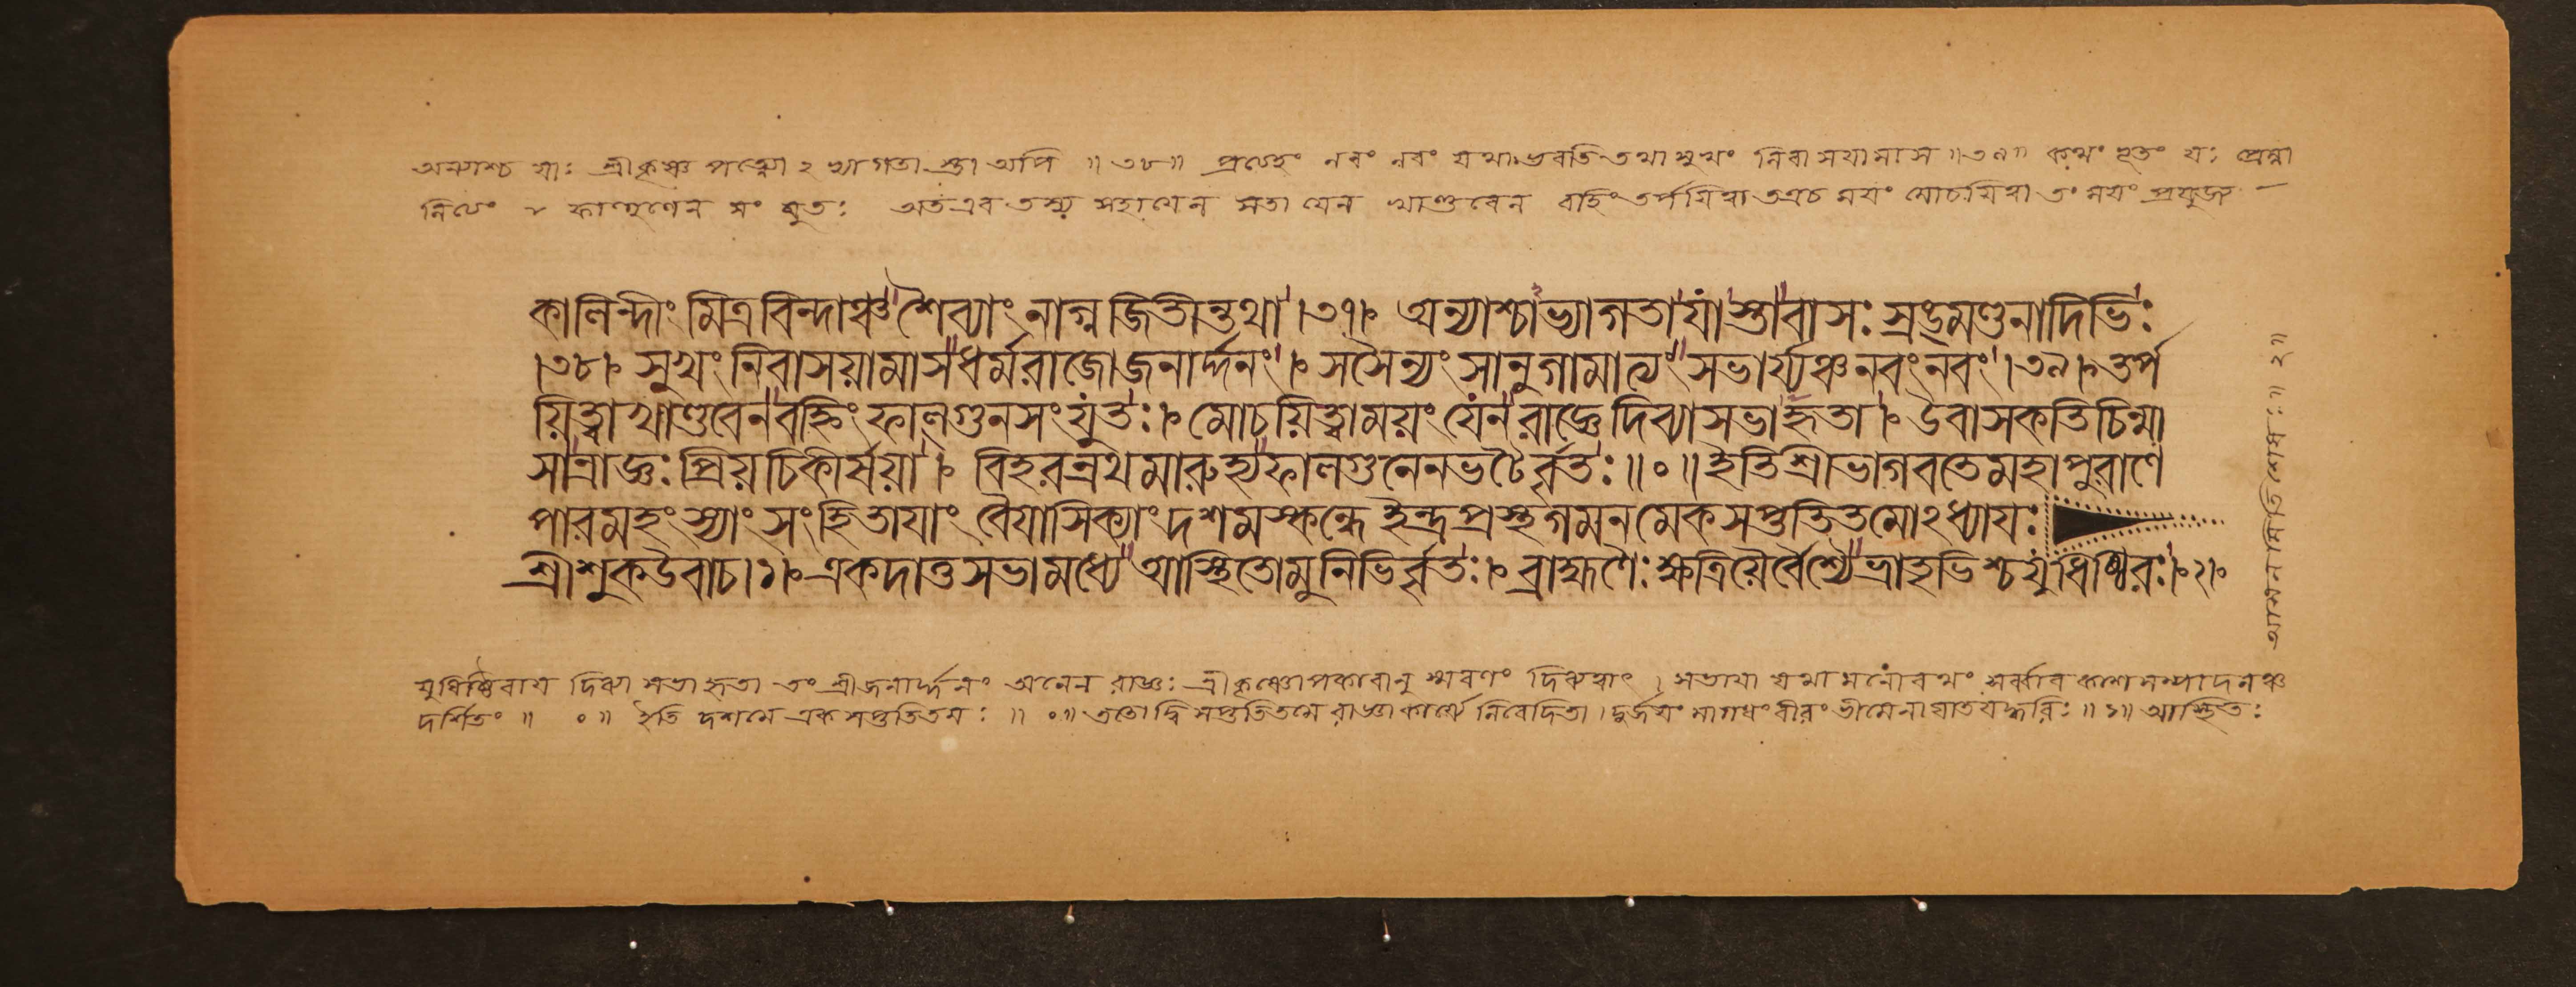 অন্যাশ্চ যাঃ শ্রীকৃষ্ণ পত্ন্যোঽ ভ্যাগতা স্তা অপি ॥৩৮॥ প্রত্যহং নবং নবং যথা ভবতি তথা সুখং নিবাসয়ামাস ॥৩৯॥ কথং
ফাল্গুনেন সংযুতঃ অতএব তস্য সহায়েন খাণ্ডবেন বহ্নিং তর্পয়িত্বা ততএচ ময়ং মোচয়িত্বা তং ময়ং প্রযুজ্য
কালিন্দীং মিত্রবিন্দাঞ্চ শৈব্যাং নাগ্নজিতীন্তথা ।৩৭। অন্যাশ্চাভ্যাগতা যাস্তা বাসঃ স্রঙ্মণ্ডনাদিভিঃ
।৩৮। সুখং নিবাসয়ামাস ধর্মরাজো জনার্দ্দনং । সসৈন্যং সানুগামাত্যং সভার্য্যঞ্চ নবং নবং ।৩৯। তর্প
য়িত্বা খাণ্ডবেন বহ্নিং ফাল্গুনসংযুতঃ । মোচয়িত্বা ময়ং যেন রাজ্ঞে দিব্যা সভা হৃতা । উবাস কতিচিন্মা
সান্রাজ্ঞঃ প্রিয়চিকীর্ষয়া । বিহরন্রথমারুহ্য ফাল্গুনেন ভটৈর্বৃতঃ ॥০॥ ইতি শ্রীভাগবতে মহাপুরাণে
পারমহংস্যাং সংহিতায়াং বৈয়াসিক্যাং দশমস্কন্ধে ইন্দ্রপ্রস্থগমনমেকসপ্ততিতমোঽধ্যায়ঃ
শ্রীশুক উবাচ ।১। একদা তু সভামধ্যে আস্থিতো মুনিভির্বৃতঃ । ব্রাহ্মণৈঃ ক্ষত্রিয়ৈর্বৈশ্যৈর্ভ্রাতৃভিশ্চ যুধিষ্ঠিরঃ ।২।
যুধিষ্ঠিরায় দিব্যা সভা হৃতা তং শ্রীজনার্দ্দনং অনেন রাজ্ঞঃ শ্রীকৃষ্ণোপকারানু স্মরণং সভায়া যথা মনোরথং
দর্শিতং ॥ ০ ॥ ইতি দশমে একসপ্ততিতমঃ ॥ ০॥ ততো দ্বিসপ্ততিতমে রাজ্ঞা কার্য্যে নিবেদিতা । দুর্জয়ং মাগধং বীরং ভীমেনাঘাতয়দ্ধরিঃ ॥১॥ আস্থিতঃ